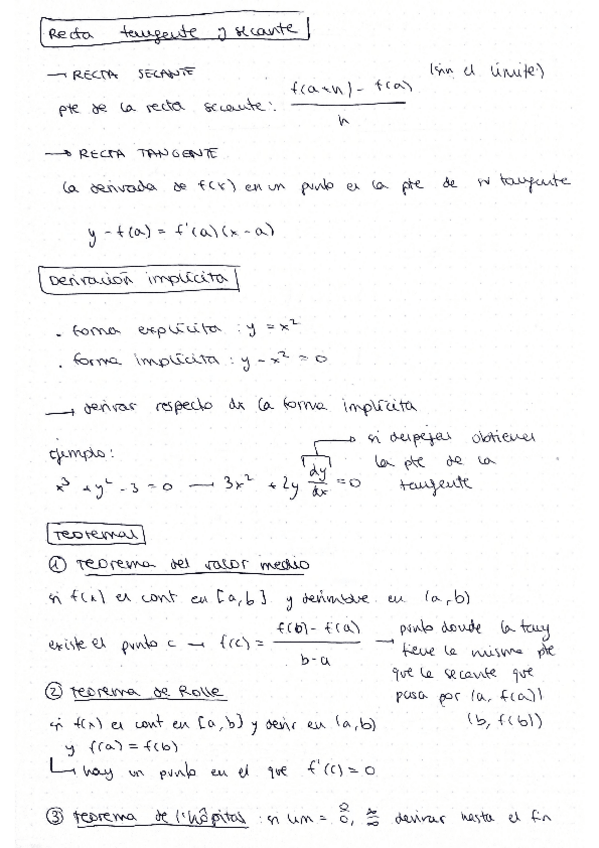 Recta tangente y secante
→ RECTA SECANTE (sin el límite)
pte de la recta secante: f(a+h) - f(a) / h
→ RECTA TANGENTE
La derivada de f(x) en un punto es la pte de su tangente
y - f(a) = f'(a)(x - a)
Derivación implícita
. forma explícita : y = x²
. forma implícita : y - x² = 0
→ derivar respecto dx la forma implícita
ejemplo: → si despejas obtienes
la pte de la
tangente
x³ + y² - 3 = 0 — 3x² + 2y dy/dx = 0
Teoremas
① Teorema del valor medio
si f(x) es cont en [a,b] y derivable en (a,b)
existe el punto c → f(c) = f(b) - f(a) / b - a → punto donde la tang
tiene la misma pte
que la secante que
pasa por (a, f(a))
(b, f(b))
② teorema de Rolle
si f(x) es cont en [a,b] y deriv en (a,b)
y f(a) = f(b)
↳ hay un punto en el que f'(c) = 0
③ teorema de l'hôpital : si lim = 0/0, ∞/∞ derivar hasta el fin